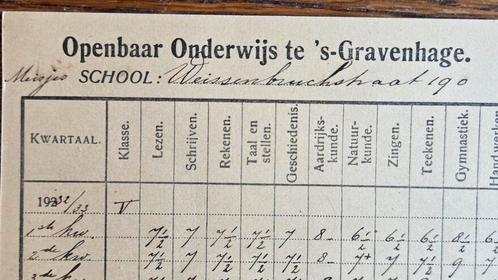 Openbaar Onderwijs te 's-Gravenhage.
Meisjes SCHOOL: Weissenbruchstraat 190
KWARTAAL. Klasse. Lezen. Schrijven. Rekenen. Taal en stellen. Geschiedenis. Aardrijkskunde. Natuurkunde. Zingen. Teekenen. Gymnastiek. Handwerken
1932/33 V
1ste kw. 7½ 7 7½ 7½ 7 8- 6½ 6½ 6½ 8½ 6
2de kw. 7½ 7 7½ 7½ 8- 8- 7+ 7 7½ 9 7